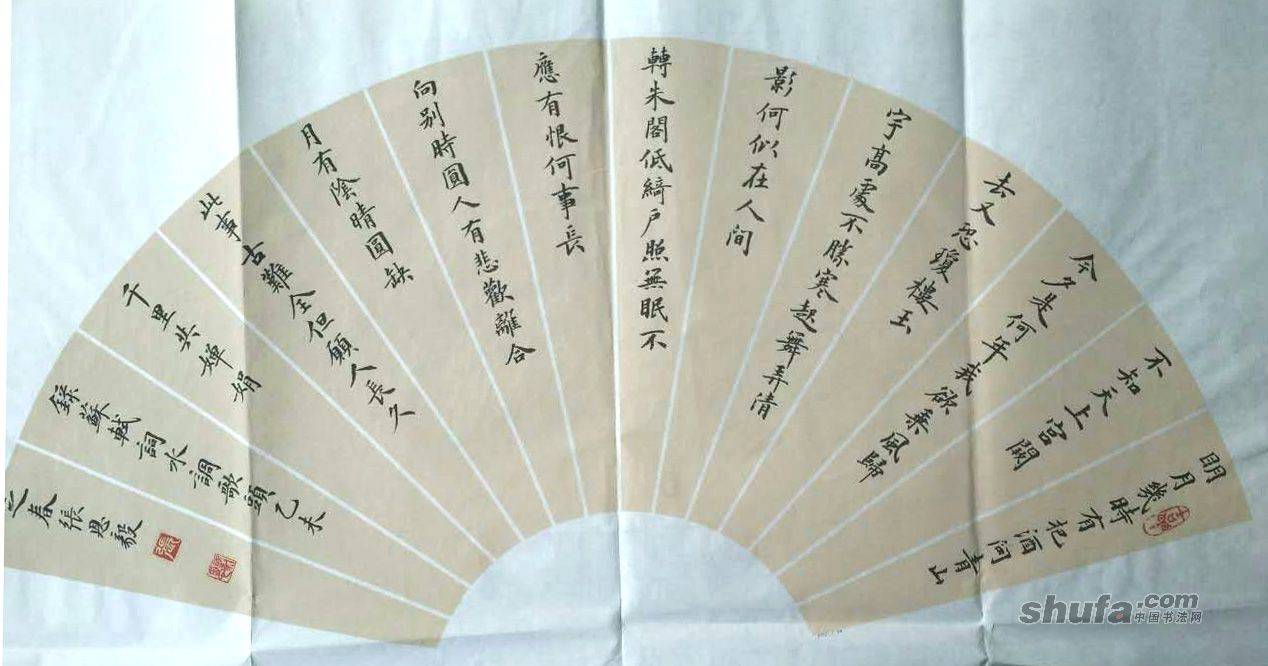 明月幾時有把酒问青山
不知天上宮闕
今夕是何年我欲乘風歸
去又恐瓊樓玉
宇高處不勝寒起舞弄清
影何似在人间
轉朱閣低綺户照無眠不
應有恨何事長
向别時圓人有悲歡離合
月有陰晴圆缺
此事古難全但願人長久
千里共嬋娟
錄蘇軾詞水调歌頭乙未
之春張恩毅
shufa.com
中国书法网